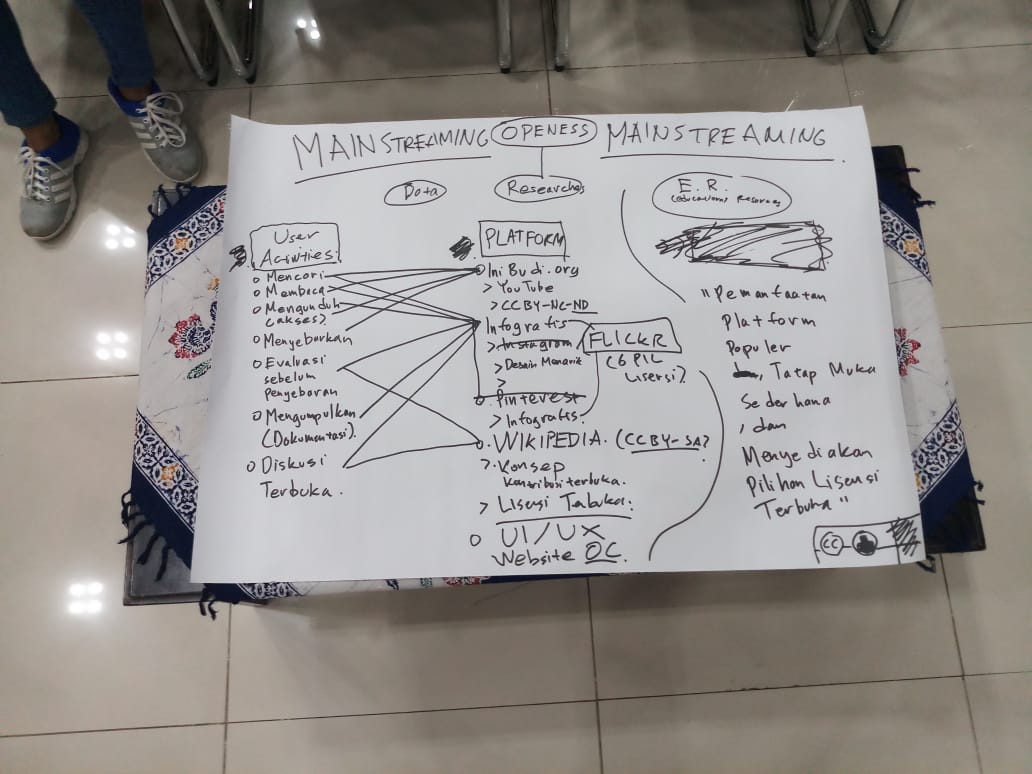 MAINSTREAMING OPENESS MAINSTREAMING
Data
Researches
E.R.
(educational Resources
User
Activities
o Mencari
o Membaca
o Mengunduh
(akses).
o Menyebarkan
o Evaluasi
sebelum
Penyebaran
o Mengumpulkan
(Dokumentasi).
o Diskusi
Terbuka.
PLATFORM
o Ini Budi.org
> YouTube
> CC BY-NC-ND
Infografis
> Instagram
> Desain Menarik
>
o Pinterest
> Infografis
o WIKIPEDIA. (CC BY-SA)
> Konsep
Kontribusi terbuka.
> Lisensi Terbuka.
o UI/UX
Website OC.
FLICKR
(6 PIL
Lisensi).
"Pemanfaatan
Platform
Populer
, Tatap Muka
Sederhana
, dan
Menyediakan
Pilihan Lisensi
Terbuka"
CC